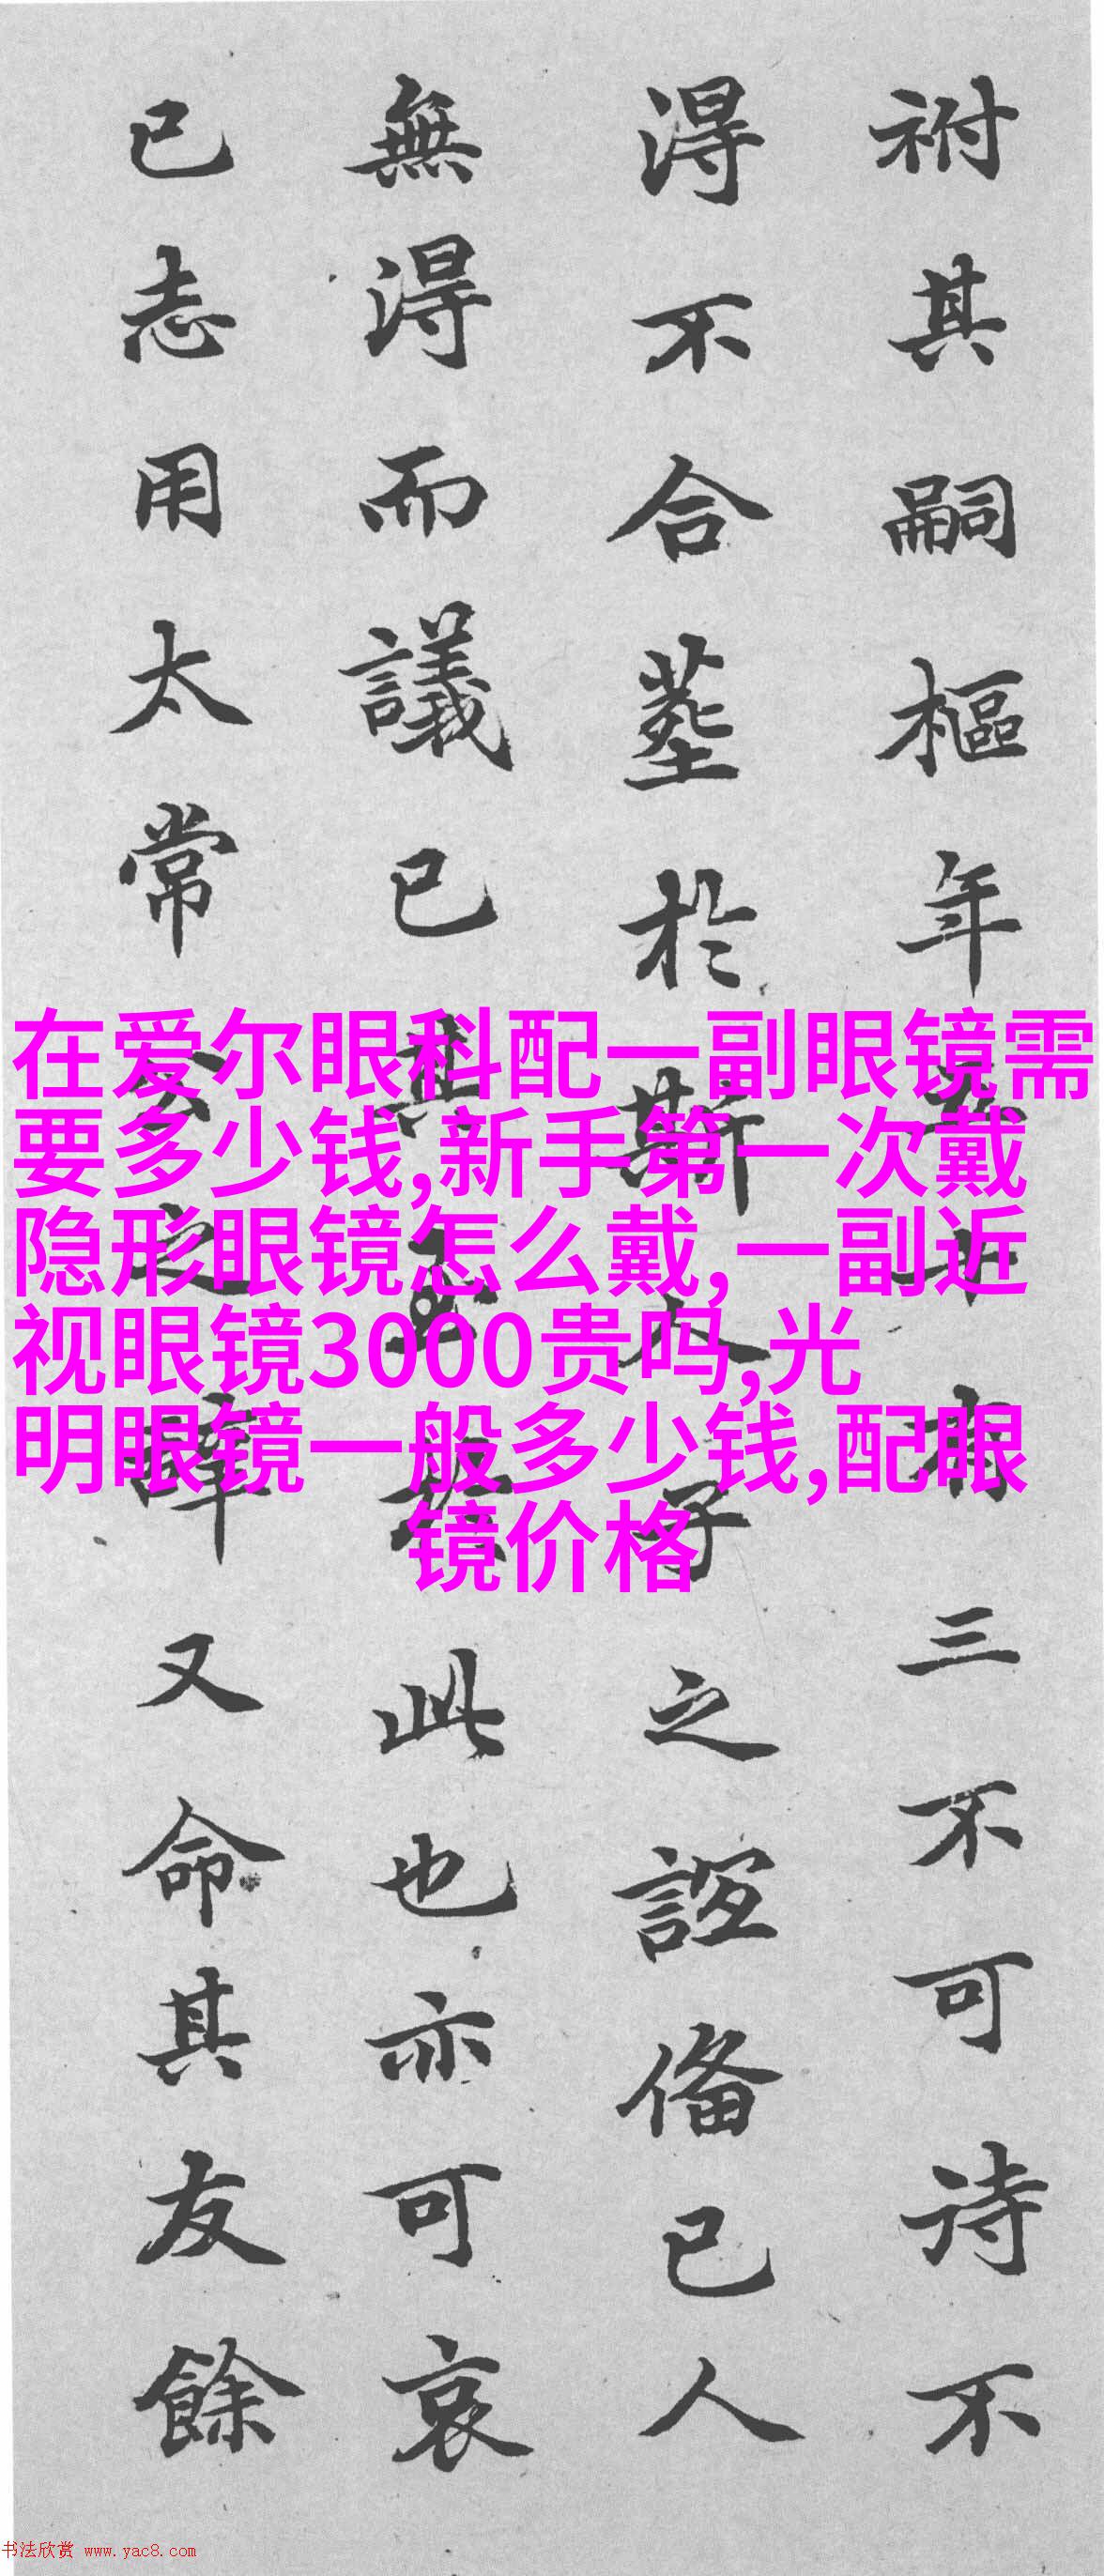 祔其嗣樞年
三不可詩不
得不合葬於斯人子之誼備已人
無得而議已其至於此也亦可哀
已志用太常公之障又命其友餘
在爱尔眼科配一副眼镜需
要多少钱,新手第一次戴
隐形眼镜怎么戴,一副近
视眼镜3000贵吗,光
明眼镜一般多少钱,配眼
镜价格
书法欣赏 www.yac8.com